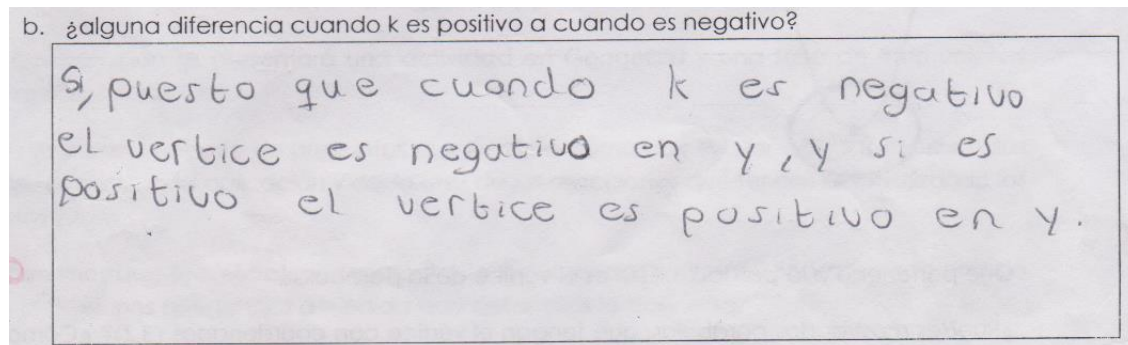 b. ¿alguna diferencia cuando k es positivo a cuando es negativo?
Si, puesto que cuando k es negativo
el vertice es negativo en y, y si es
positivo el vertice es positivo en y.